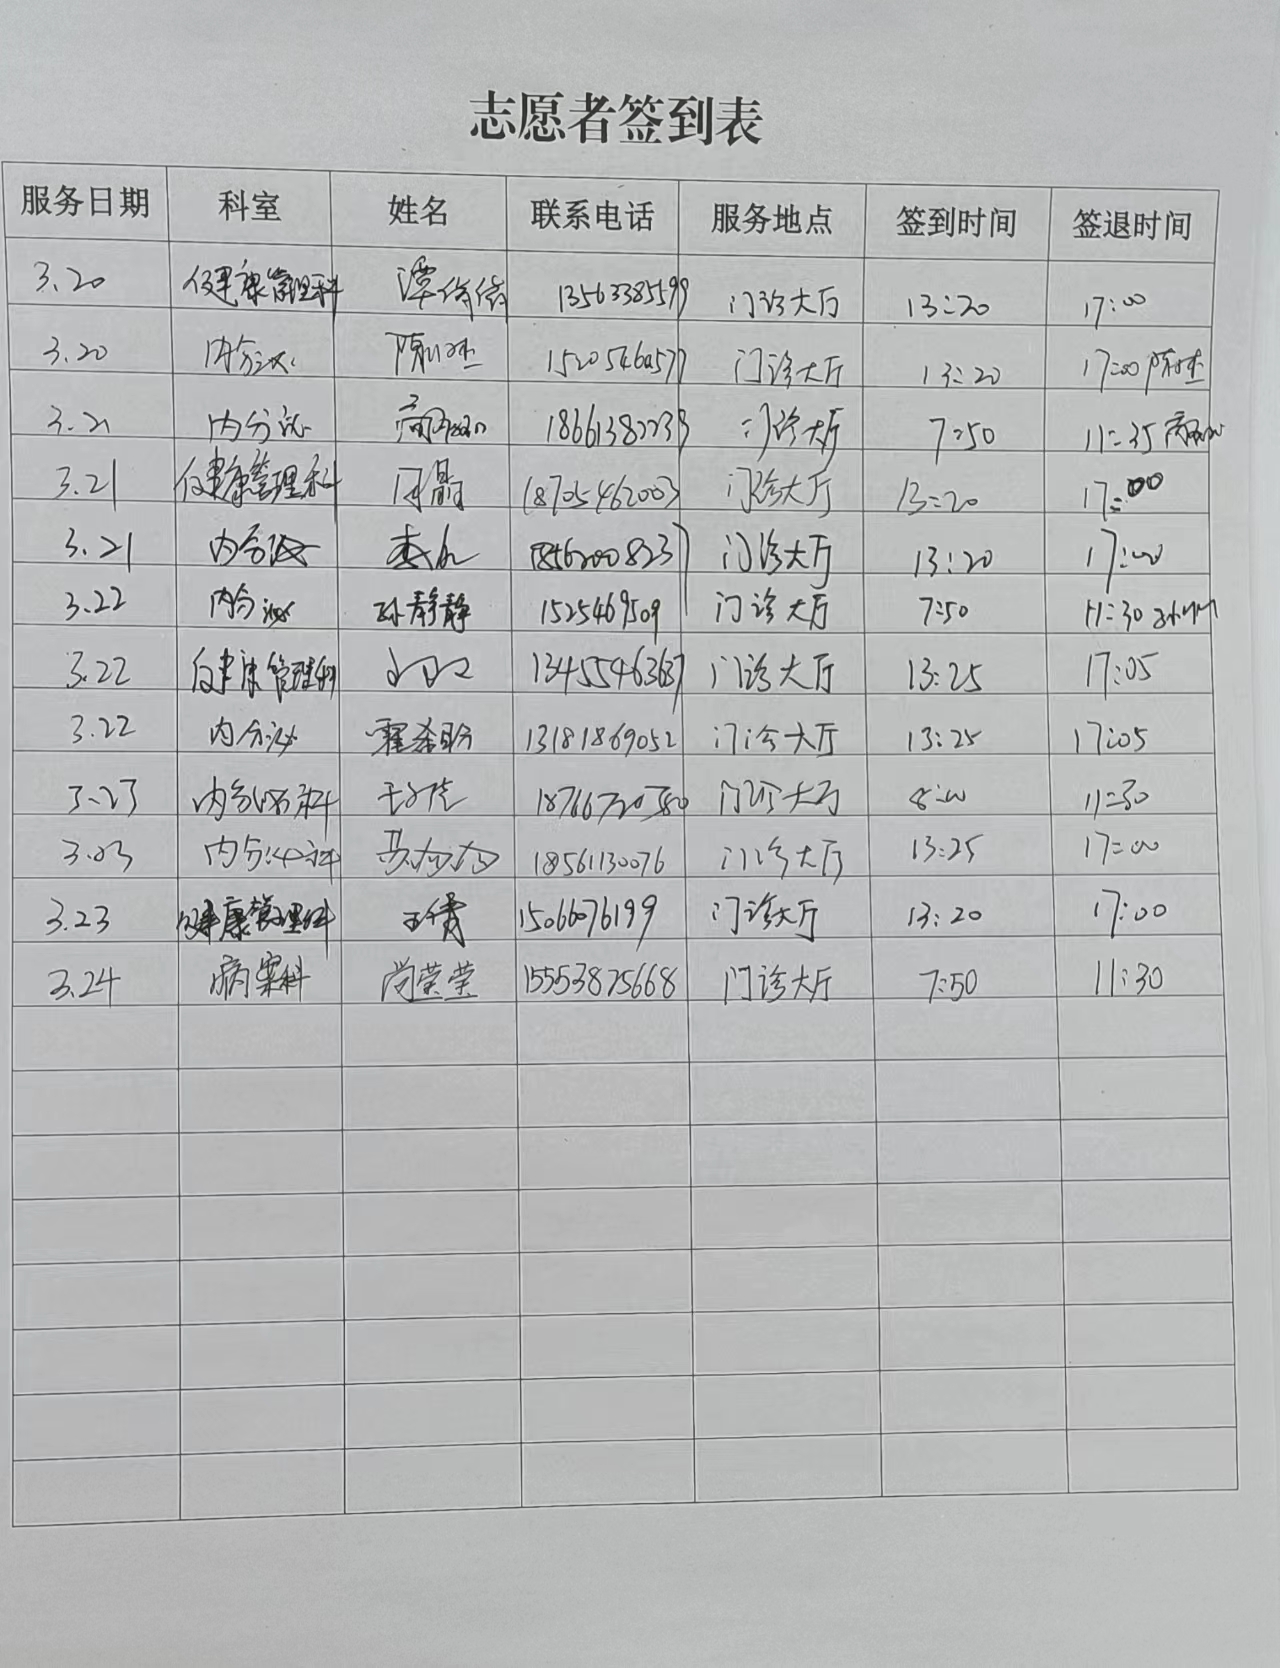 志愿者签到表
服务日期 科室 姓名 联系电话 服务地点 签到时间 签退时间
3.20 健康管理科 谭倩倩 13563385599 门诊大厅 13:20 17:00
3.20 内分泌 1520546a577 门诊大厅 13:20 17:00
3.21 内分泌 18661382239 门诊大厅 7:50 11:35
3.21 健康管理科 闫晶 18705462003 门诊大厅 13:20 17:00
3.21 内分泌 18562008237 门诊大厅 13:20 17:00
3.22 内分泌 孙静静 1525469509 门诊大厅 7:50 11:30
3.22 健康管理科 13455463687 门诊大厅 13:25 17:05
3.22 内分泌 翟希盼 13181869052 门诊大厅 13:25 17:05
3.23 内分泌科 18766720580 门诊大厅 8:00 11:30
3.23 内分泌科 18561130076 门诊大厅 13:25 17:00
3.23 健康管理科 王倩 15066076199 门诊大厅 13:20 17:00
3.24 病案科 尚荣荣 15553875668 门诊大厅 7:50 11:30